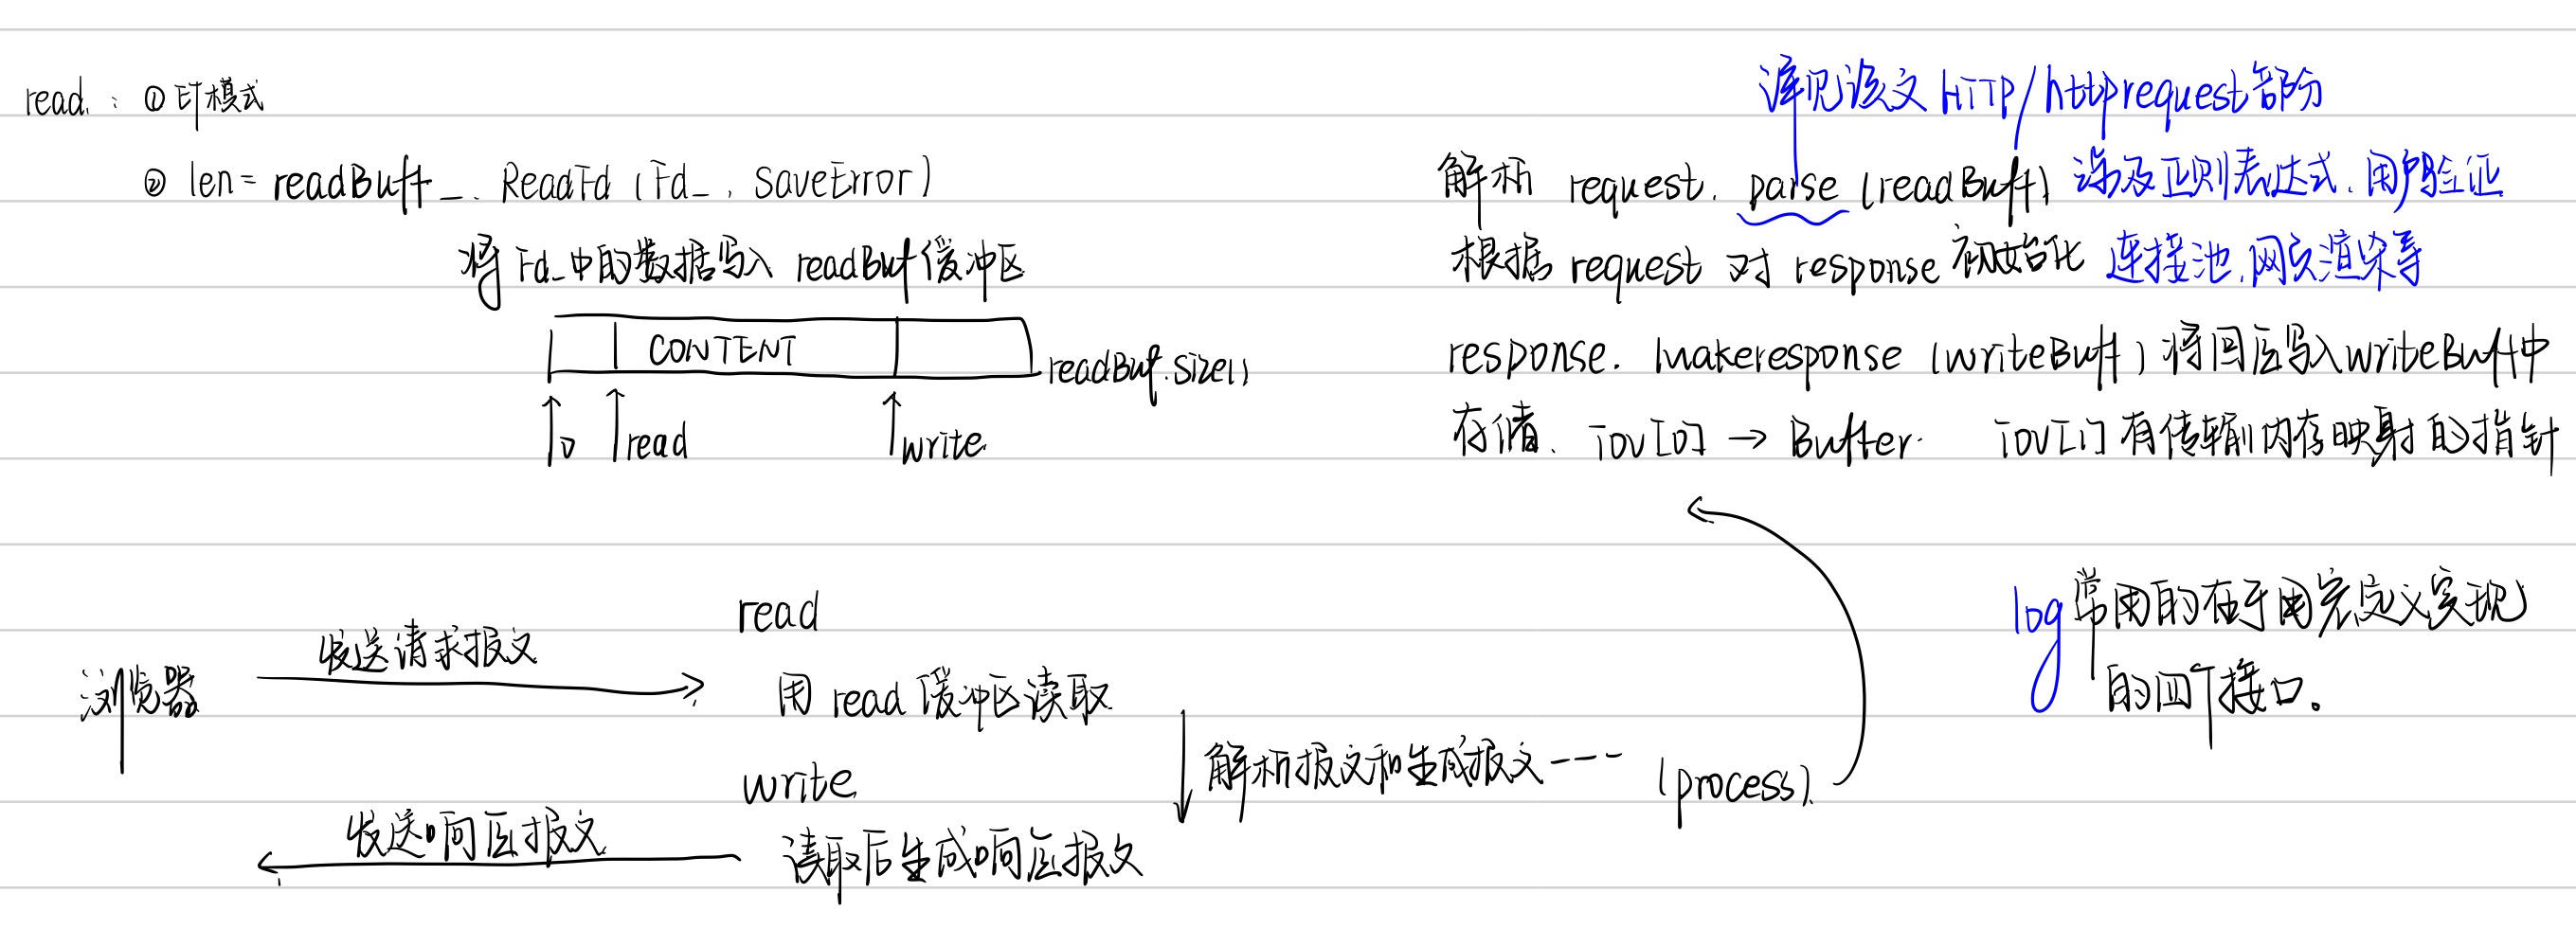 read: ① ET模式
② len = readBuff_. ReadFd (Fd_, SaveError)
将 Fd_中的数据写入 readBuf 缓冲区
CONTENT
readBuf.size()
0 read write
详见该文 HTTP/httprequest部分
解析 request. parse (readBuff) 涉及正则表达式、用户验证
根据 request 对 response 初始化 连接池、网页渲染等
response. makeresponse (writeBuff) 将回应写入writeBuff中
存储. iov[0] → Buffer. iov[1] 有传输内存映射的指针
浏览器
发送请求报文
read
用 read 缓冲区读取
write
读取后生成响应报文
发送响应报文
解析报文和生成报文---- (process).
log 常用的在于用宏定义实现
的四个接口。